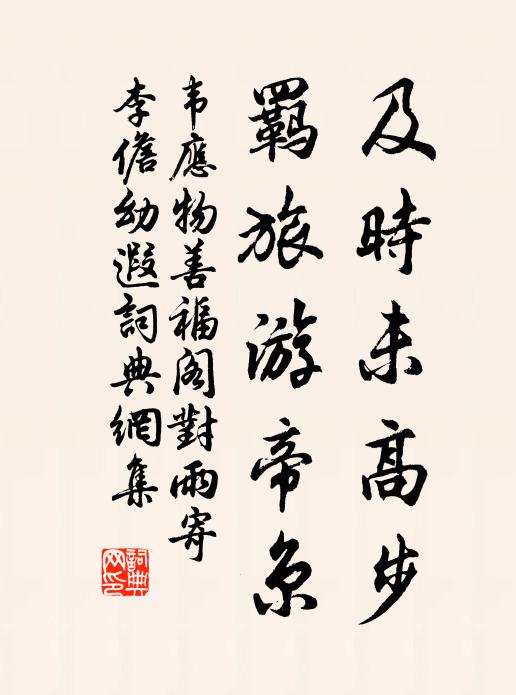 及時未高步
羈旅游帝京
韦應物善福阁對雨寄
李儋幼遐詞典網集
詞典
网印